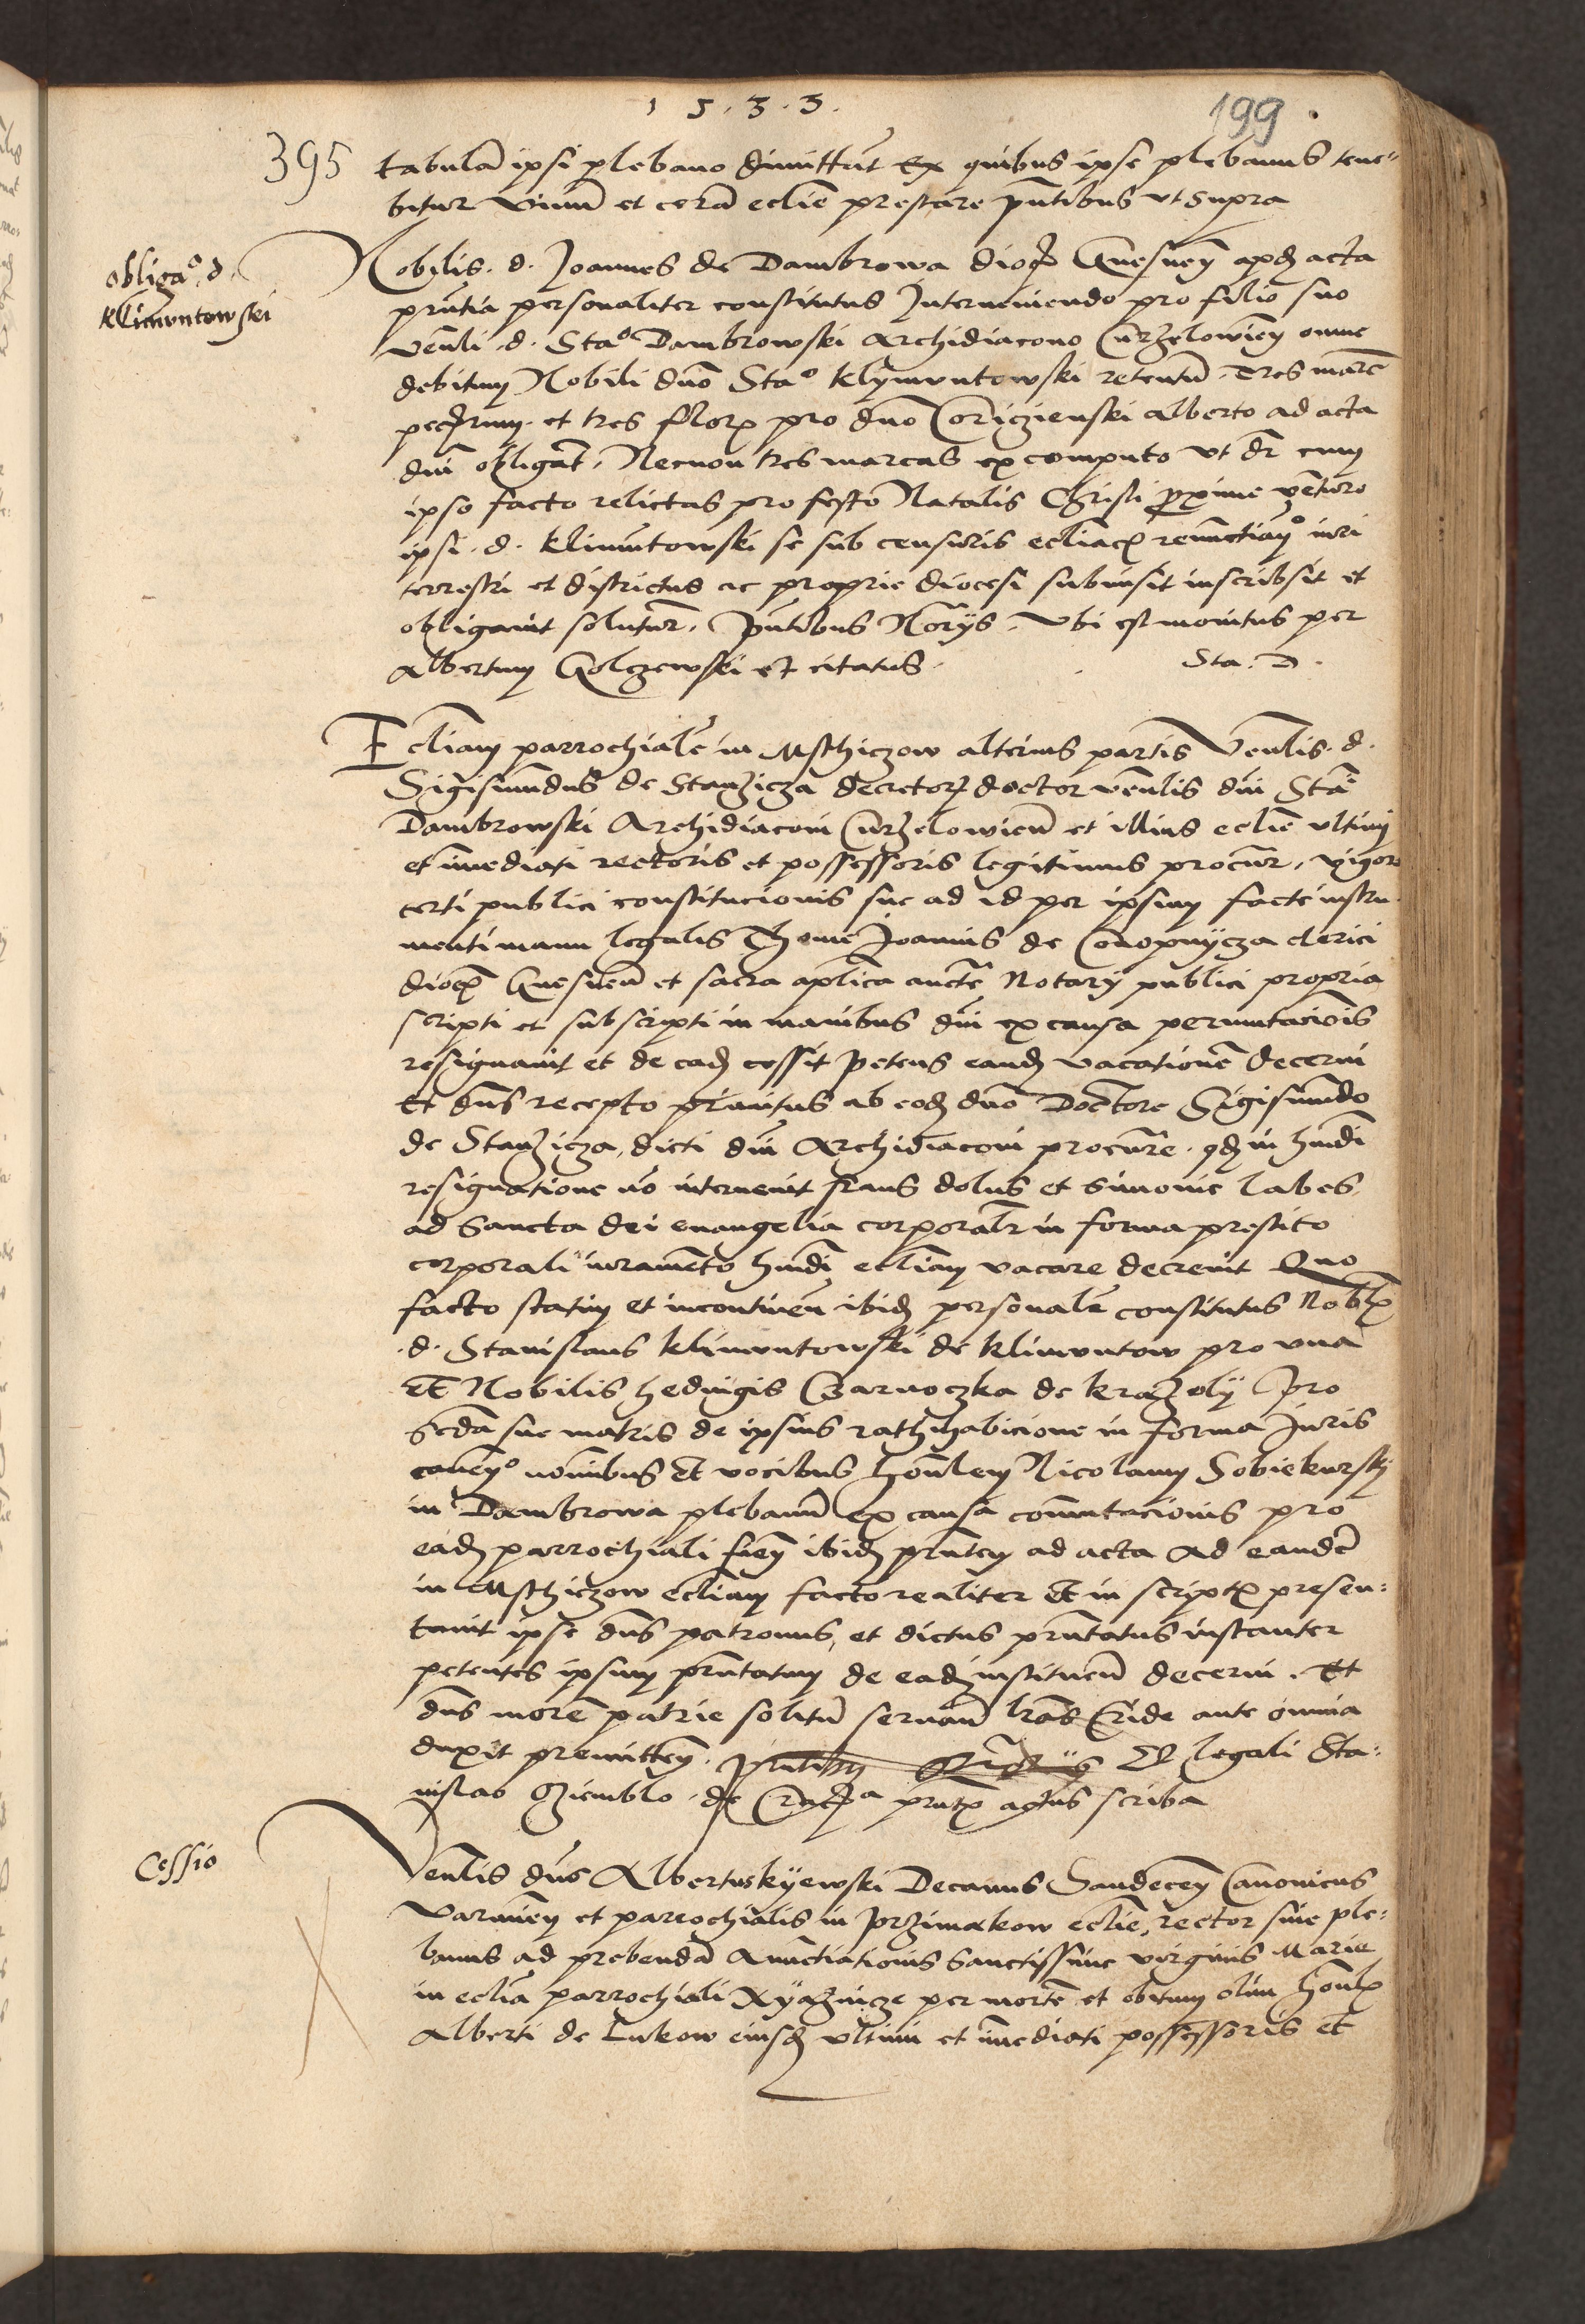 1 5 . 3 . 3 .
199
395
tabulā ipsi plebano dimittūt Ex quibus ipse plebanus tene
bitur vinū et cerā eclīe prestare pn̄tibus vt supra
obliga° d.
Klimuntowski
Nobilis . d . Joannes de Dambrowa dioc̄ Gnesneṅ apd acta
prn̄tia personaliter constitutus Interueniendo pro filio suo
veṅli . d . Sta° Dambrowski Archidiacono Curzelowieṅ omne
debitum Nobili dn̄o Sta° Klymuntowski retentū . tres marc̄
pec̄rum . et tres flor̄ pro dn̄o alberto ad acta
dn̄i obligāt , Necnon tres marcas ex computo vt dr̄ cum
ipso facto relictas pro festo Natalis Christi proxime venturo
ipsi . d . Klimūtowski se sub censuris eccliac̄ renūctian° iuri
terrestri et districtus ac proprie diocesi submisit inscribsit et
obligauit soluturū . Pn̄tibus No͞rijs . Vbi est monitus per
Albertum Golczewski et citatus .
Sta . D .
Ecliam parrochialē in Msthiczow alterius partis Venlis . d .
Sigismundus de Stanzicza decretor doctor venlis dn̄i Sta͞i
Dambrowski Archidiaconi Curzelowieṅ et illius eclīe vltimi
et im̄ediati rectoris et possessoris legitimus procur̄ , vigore
certi publici constitucionis sue ad id per ipsum facte instru
menti manu legalis Thome Joannis de Conopnycza clerici
dioc̄ Gnesneṅ et sacra aplīca auct̄e Notarij publici propria
scripti et subscripti in manibus dn̄i ex causa permutacio͞is
resignauit et de eadͤ cessit petens eandͤ vacationē decerni
Et dn̄s recepto prius ab eodͤ dn̄o Doctore Sigismundo
de Stanzicza , dicti dn̄i Archidiaconi procur̄e . qd in hm̄di
resignatione no͞ interuenit fraus dolus et simonie labes
ad sancta dei euangelia corporalr̄ in forma prestito
corporali iuramento hm̄di ecliam vacare decreuit Quo
facto statim et incontineṅ ibidͤ personalr̄ constitutus Noblx̄
. d . Stanislaus Klimuntowski de Klimuntow pro vna
Et Nobilis Heduigis Czarnoczka de Krazoly pro
sc͞da sue matris de ipsius rathihabicione in forma Juris
caueṅ° nominibus et vocibus hon̄lem Nicolaum Sobiekursky
in Dambrowa plebanū ex causa com̄utacionis pro
eadͤ parrochiali fieṅ ibidͤ prn̄tem ad acta ad eandē
in Msthiczow ecliam facto realiter et in scriptx̄ presen:
tauit ipse dn̄s patronus , et dictus prn̄tatus instanter
petentes ipsum prn̄tatum de eadͤ instituenū decerni . Et
dn̄s morē patrie solitū seruan̄ lr̄as Cride ante omnia
duxit premitteṅ . legali Sta:
nislao Gziemblo . de prn̄tx̄ actus scriba
Cessio
Venlis dn̄s Albertus Kyewski Decanus Sandeceṅ Canonicus
Varmieṅ et parrochialis in Przimakow eclīe , rector siue ple:
banus ad prebendā Anūctiationis sanctissime virginis Marie
in eclīa parrochiali Xyazdnicze per mortē et obitum olim hon̄lx̄
Alberti de Lukow eiusdͤ vltimi et im̄ediati possessoris et